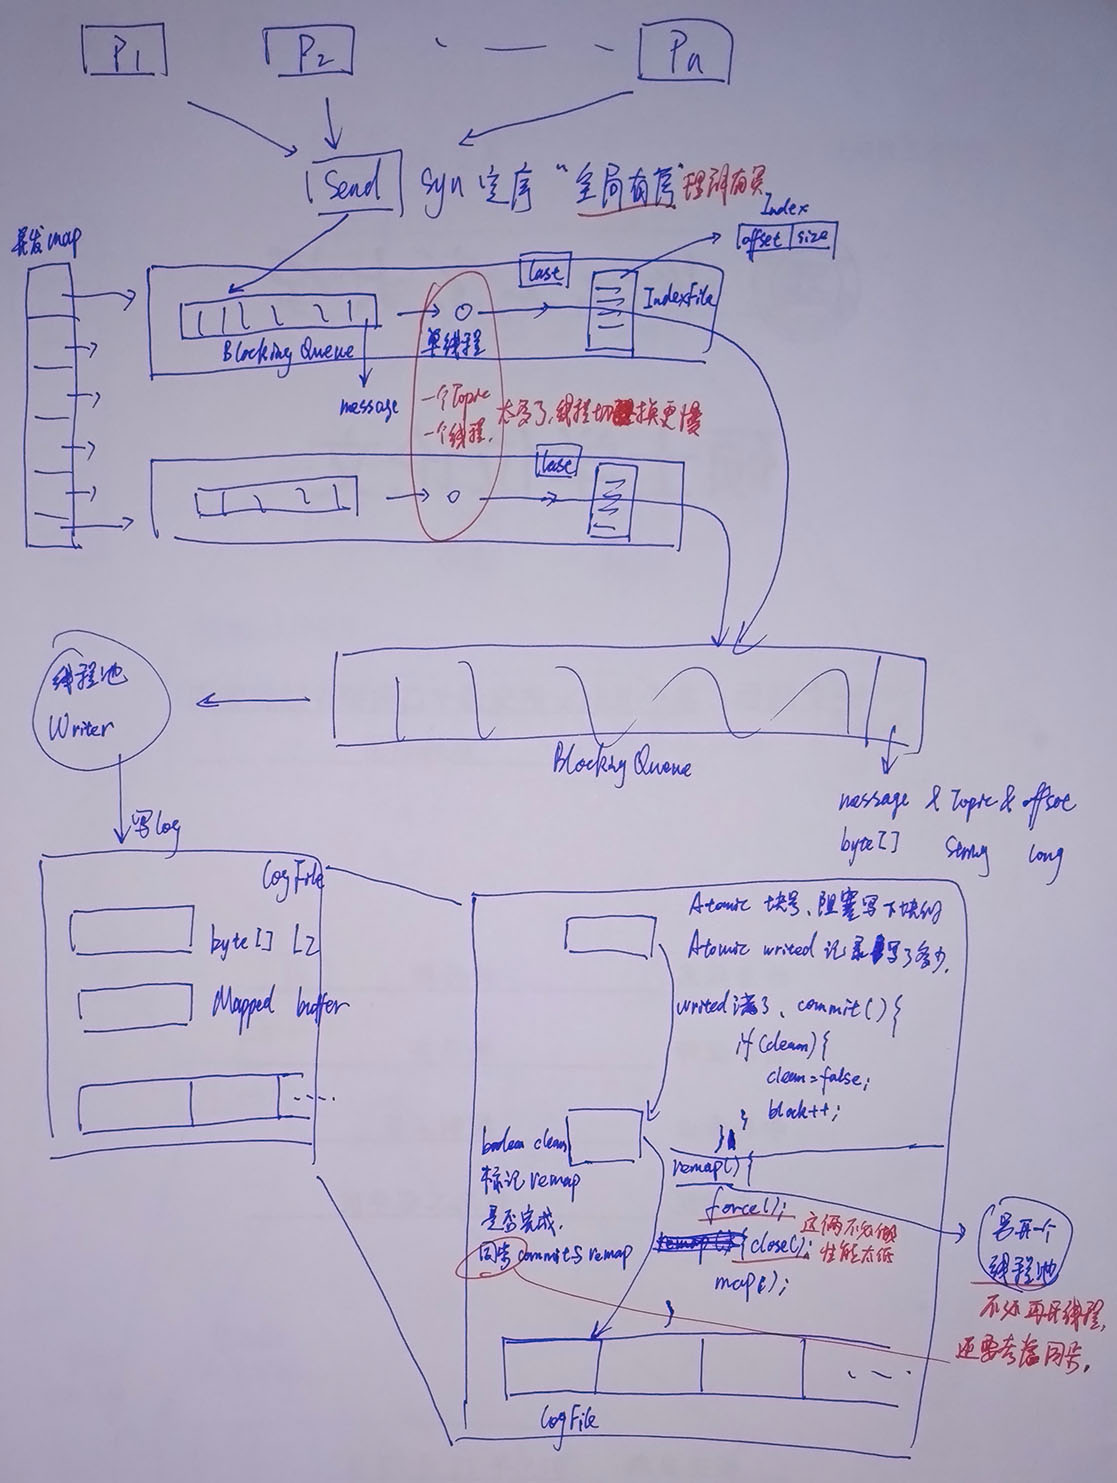 P1
P2
Pn
Send
syn 定序 "全局有序" 理解有误
Index
offset size
并发map
last
IndexFile
Blocking Queue
单线程
message
一个Topic
一个线程,
太多了,线程切换更慢
last
线程池
Writer
Blocking Queue
message & Topic & offset
byte[] String long
写log
logFile
byte[] L2
Mapped buffer
Atomic 块号、阻塞写下块的
Atomic writed 记录写了多少.
writed满了、commit(){
if(clean){
clean=false;
block++;
}
}
boolean clean
标记remap
是否完成.
同步commit与remap
remap(){
force();
close();
这俩不必做
性能太低
map();
}
另开一个
线程池
不必再开线程,
还要考虑同步.
logFile